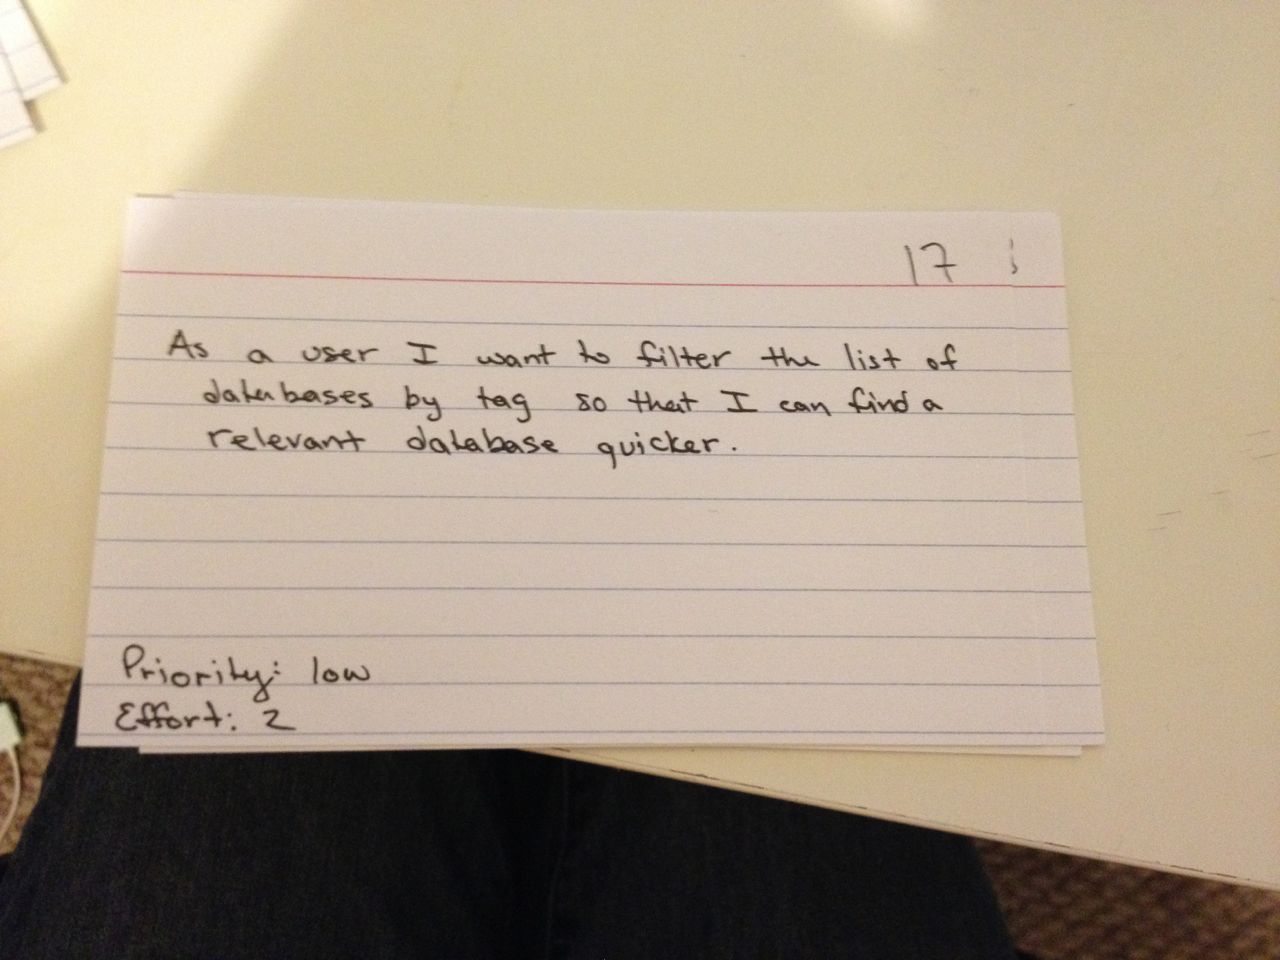 17
As a user I want to filter the list of
databases by tag so that I can find a
relevant database quicker.
Priority: low
Effort: 2